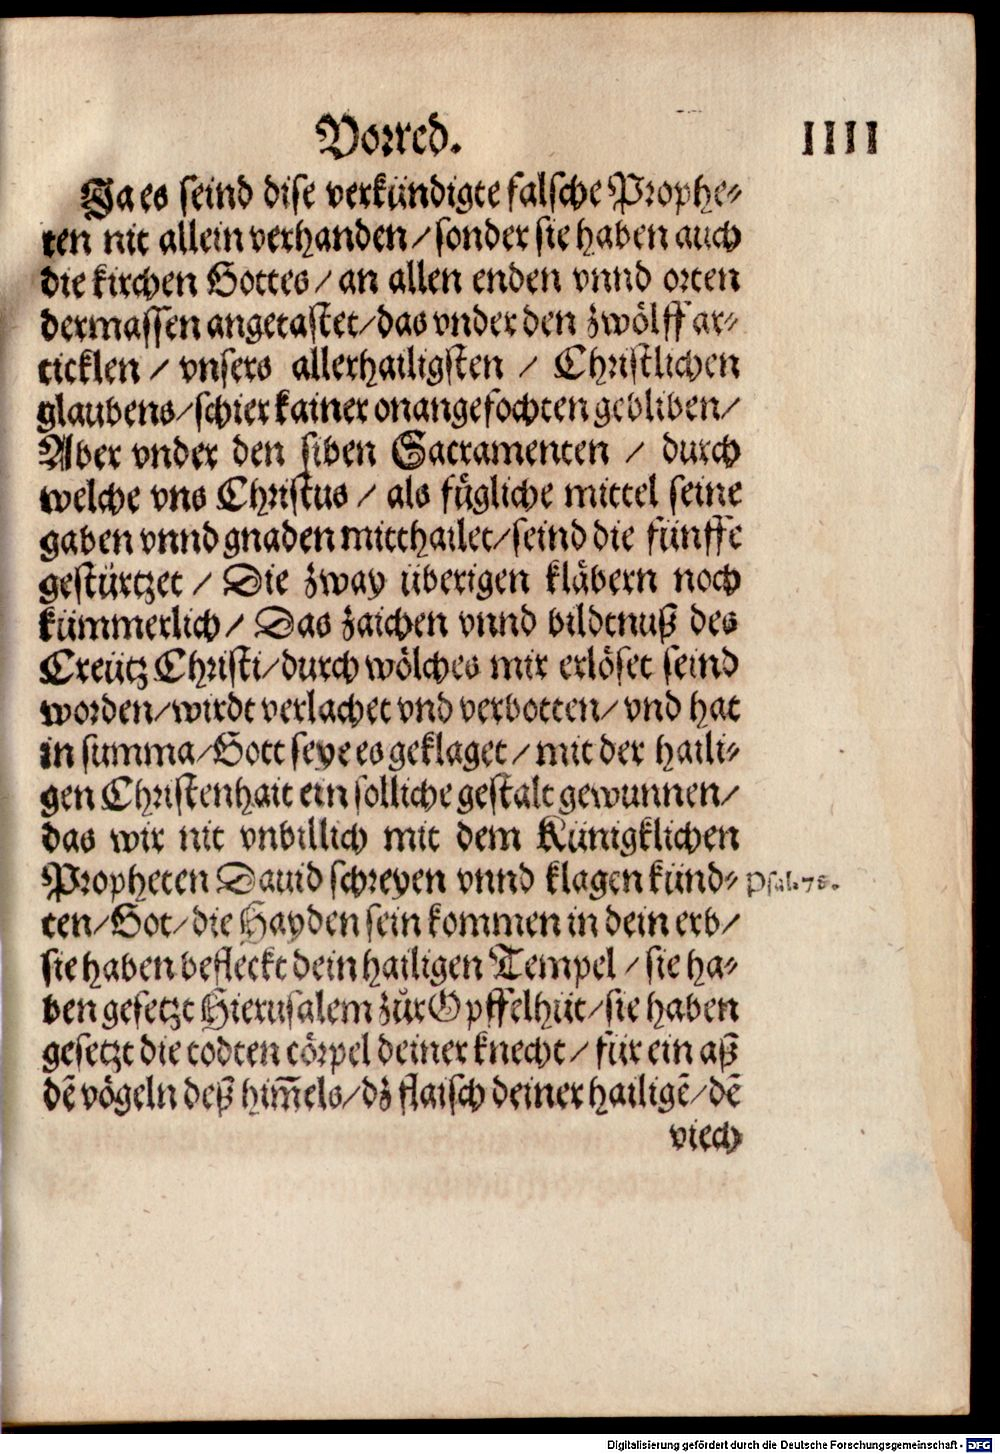 Vorred. IIII
Ja es seind dise verkündigte falsche Prophe⸗
ten nit allein verhanden/ sonder sie haben auch
die kirchen Gottes/ an allen enden vnnd orten
dermassen angetastet/ das vnder den zwölff ar⸗
ticklen/ vnsers allerhailigsten/ Christlichen
glaubens/ schier kainer onangefochten gebliben/
Aber vnder den siben Sacramenten/ durch
welche vns Christus/ als fůgliche mittel seine
gaben vnnd gnaden mitthailet/ seind die fünffe
gestürtzet/ Die zway überigen kläbern noch
kümmerlich/ Das zaichen vnnd bildtnuß des
Creütz Christi/ durch wölches mir erlöset seind
worden/ wirdt verlachet vnd verbotten/ vnd hat
in summa/ Gott seye es geklaget/ mit der haili⸗
gen Christenhait ein solliche gestalt gewunnen/
das wir nit vnbillich mit dem Künigklichen
Propheten Dauid schreyen vnnd klagen künd⸗ Psal. 78.
ten/ Got/ die Hayden sein kommen in dein erb/
sie haben befleckt dein hailigen Tempel/ sie ha⸗
ben gesetzt Hierusalem zůr Opffelhüt/ sie haben
gesetzt die todten cörpel deiner knecht/ für ein aß
dē vögeln deß him̄els/ dz flaisch deiner hailigē/ dē
viech
Digitalisierung gefördert durch die Deutsche Forschungsgemeinschaft - DFG